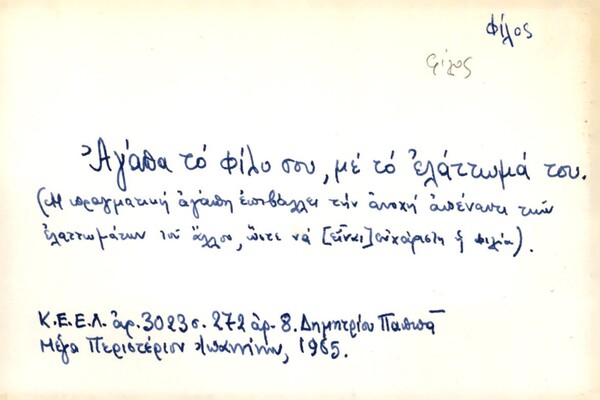 φίλος
φίλος
Ἀγάπα τό φίλο σου, μέ τό ἐλάττωμά του.
(Ἡ πραγματική ἀγάπη ἐπιβάλλει τήν ἀνοχή ἀπέναντι τῶν
ἐλαττωμάτων τοῦ ἄλλου, ὥστε νά [εἶναι] εὐχάριστη ἡ φιλία).
Κ.Ε.Ε.Λ. ἀρ. 3023 σ. 272 ἀρ. 8. Δημητρίου Παππᾶ
Μέγα Περιστέριον Ἰωαννίνων, 1965.